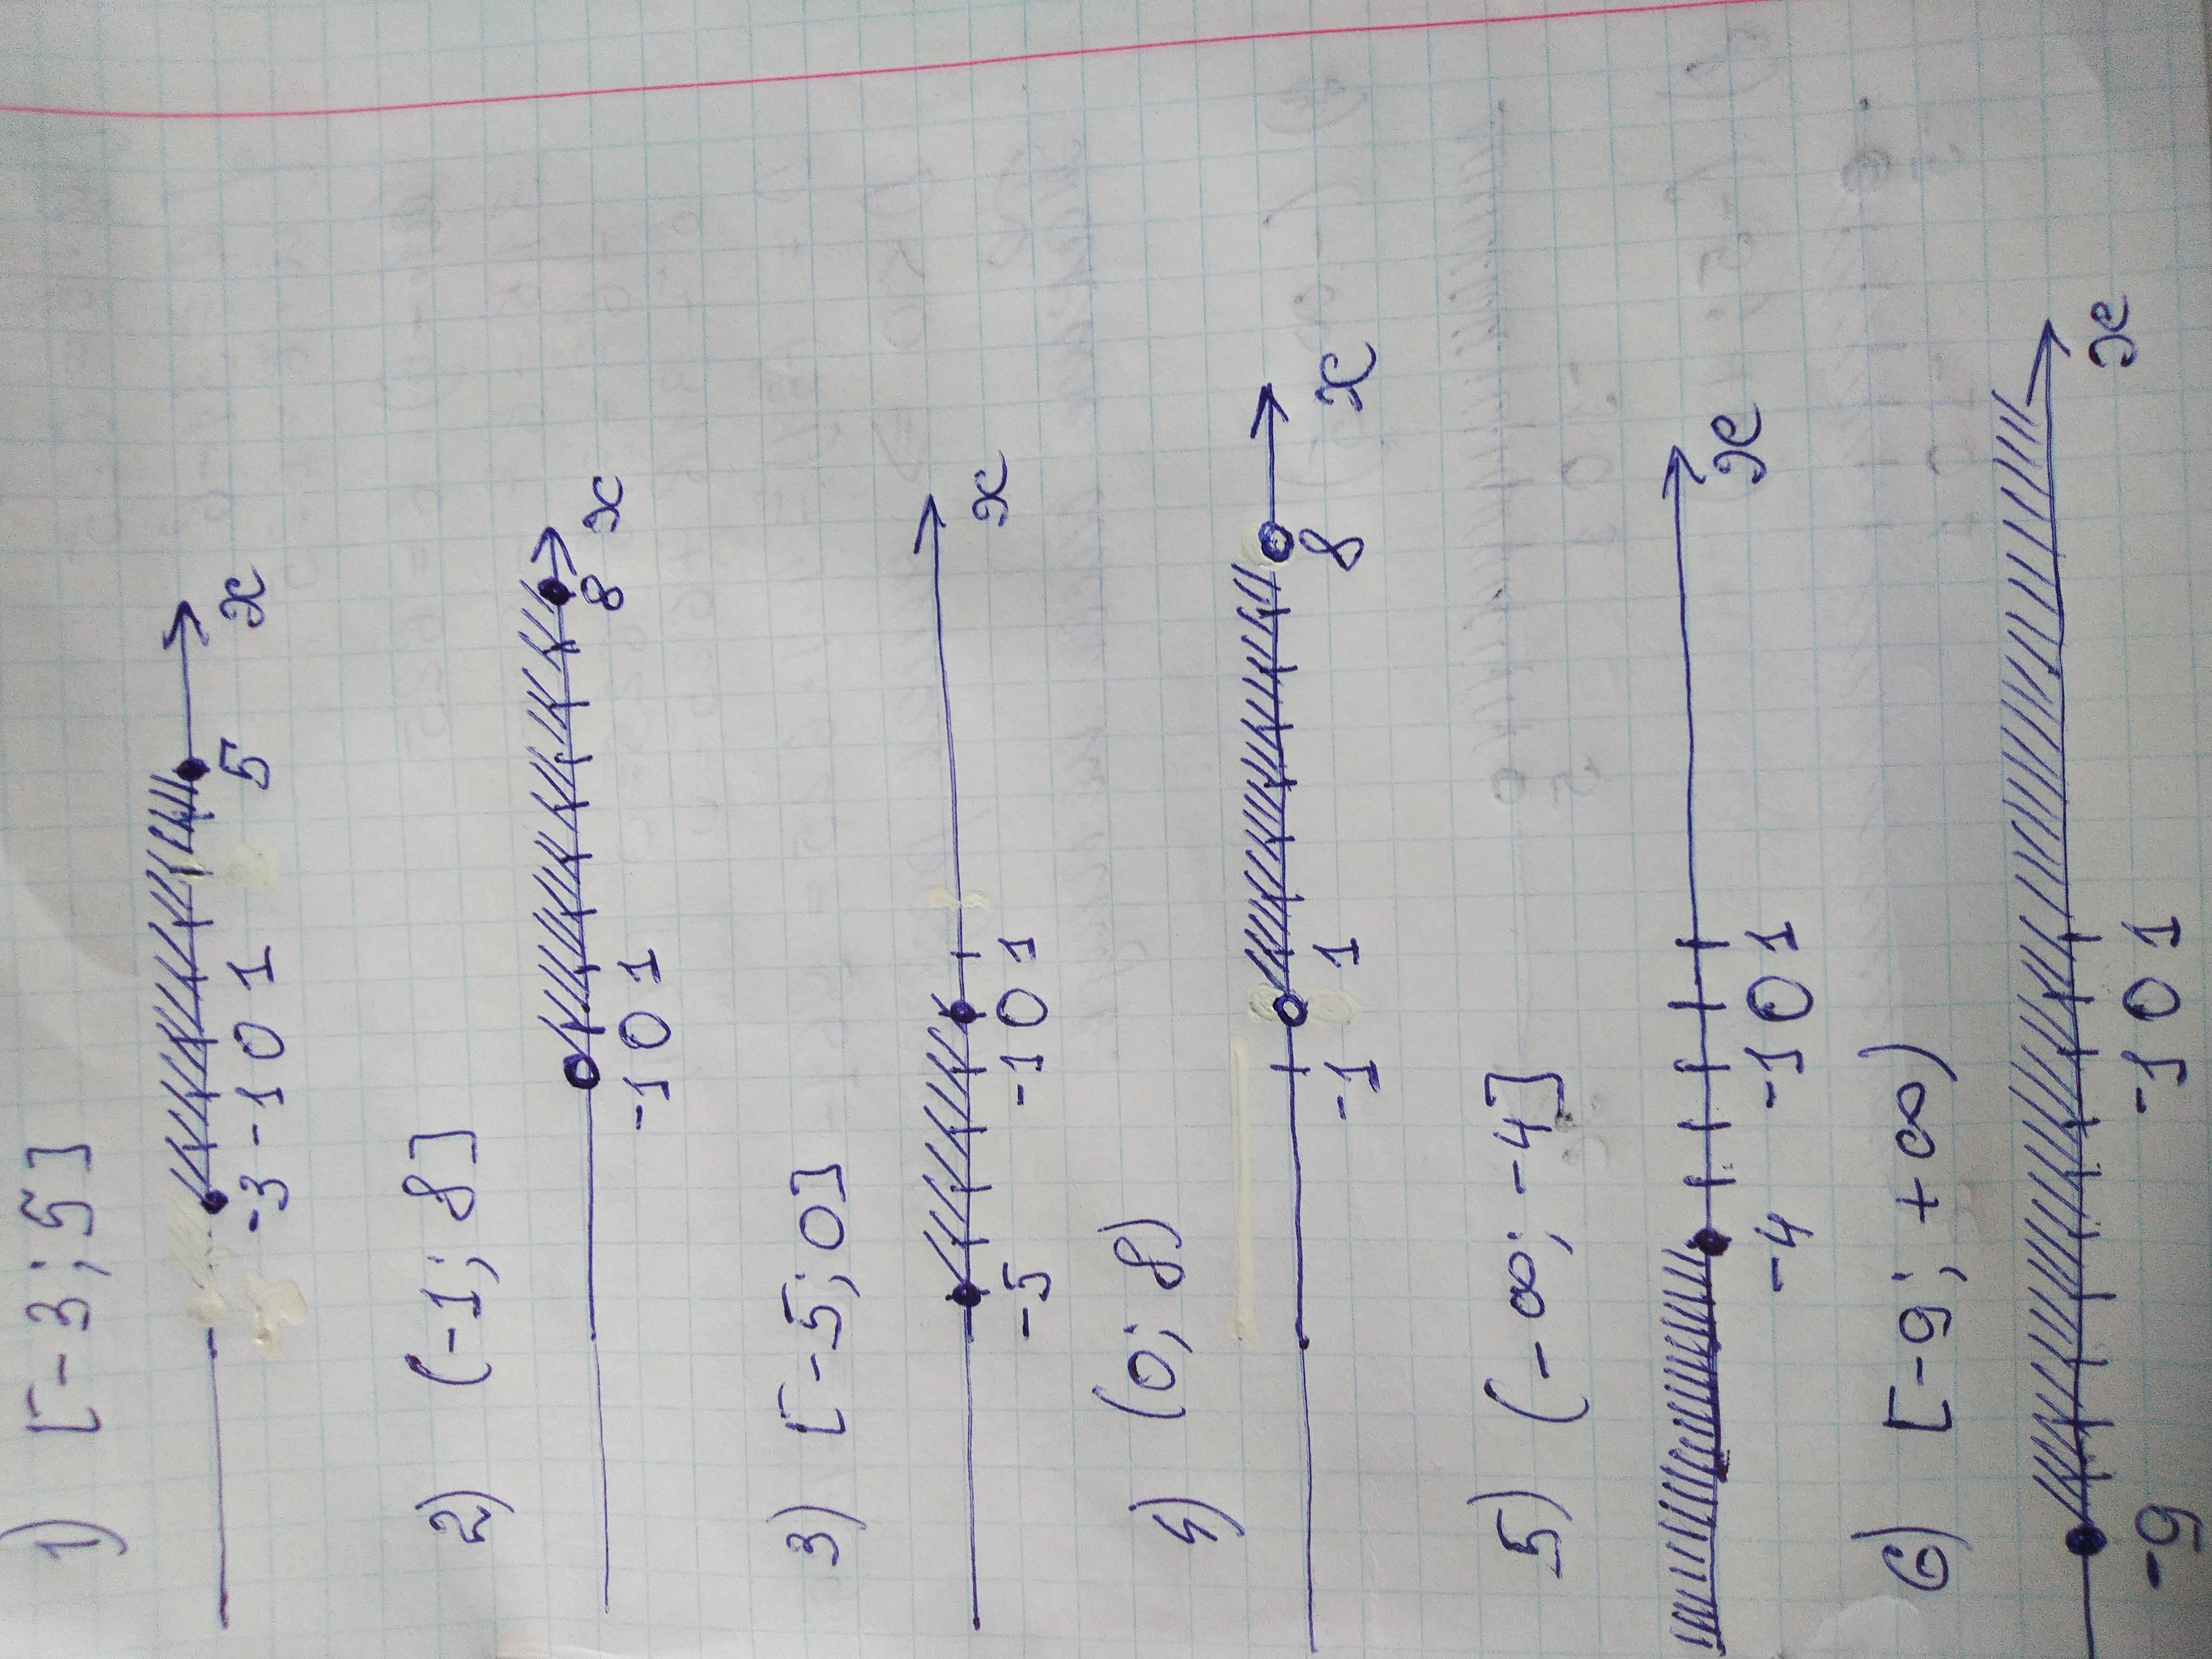 1) [-3; 5]
-3 -1 0 1 5 x
2) (-1; 8]
-1 0 1 8 x
3) [-5; 0]
-5 -1 0 1 x
4) (0; 8)
-1 1 8 x
5) (-∞; -4]
-4 -1 0 1 x
6) [-9; +∞)
-9 -1 0 1 x